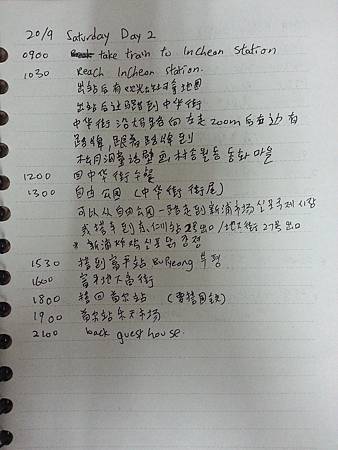 20/9 Saturday Day 2
0900 take train to Incheon station
1030 Reach Incheon station.
出站后有观光处拿地图
出站后过马路到中华街
中华街 沿大路向左走200m后右边有
路牌,跟着路牌到
松月洞童话壁画村송월동 동화마을
1200 回中华街午餐
1300 自由公园 (中华街 街尾)
可以从自由公园一路走到新浦市场 신포국제시장
或搭车到东仁川站 2号出口/地下街 27号出口
* 新浦炸鸡 신포닭강정
1530 搭到富平站 BuPyeong 부평
1600 富平地下商街
1800 搭回首尔站
1900 首尔站乐天市场
2100 back guest house.